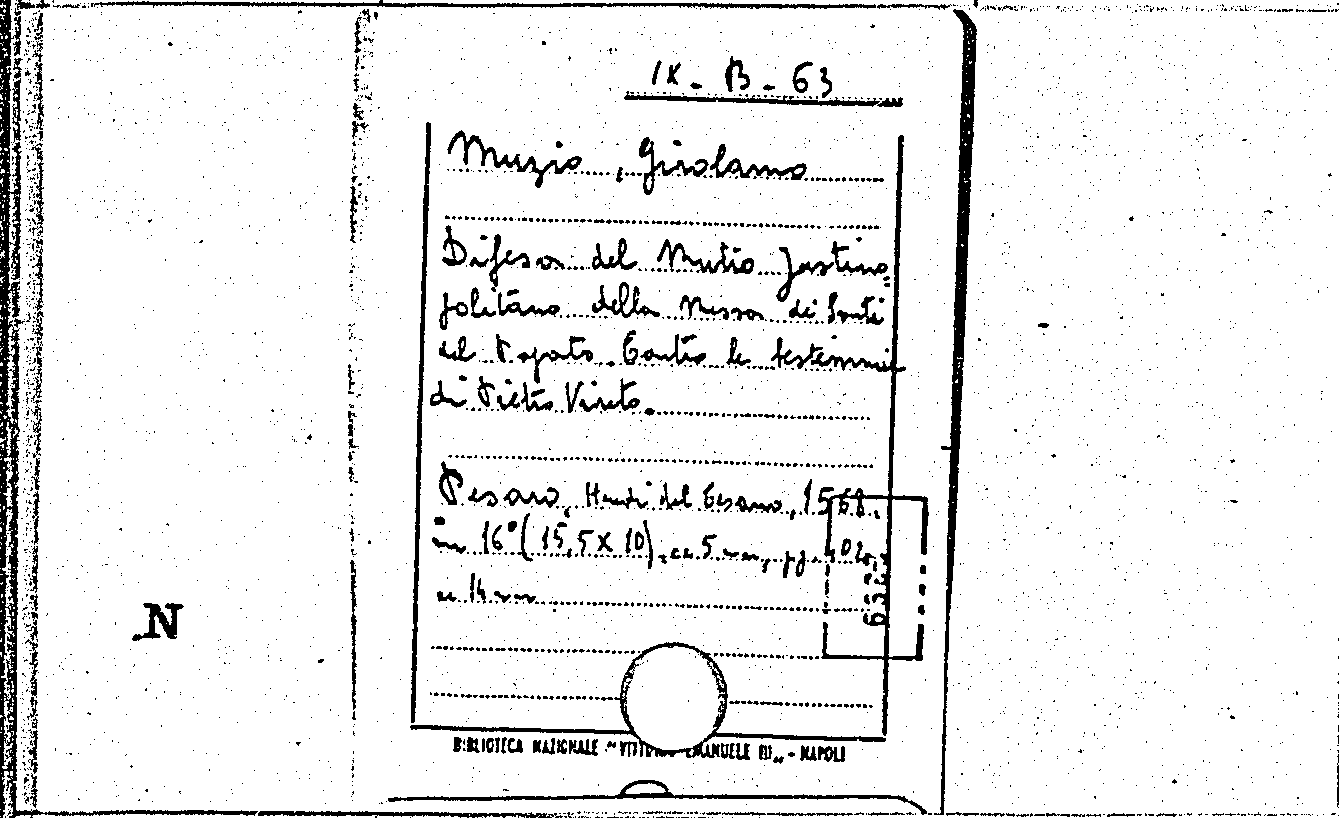 IX - B - 63
Muzio, Girolamo
Difesa del Mutio Justino=
politano della Messa dei Santi
del Papato. Contro le bestemmie
di Pietro Vireto.
Pesaro, del Cesano, 1568.
in 16° (15,5 X 10), cc 5 nn,
cc 14 nn
N
BIBLIOTECA NAZIONALE "VITTORIO EMANUELE III" - NAPOLI